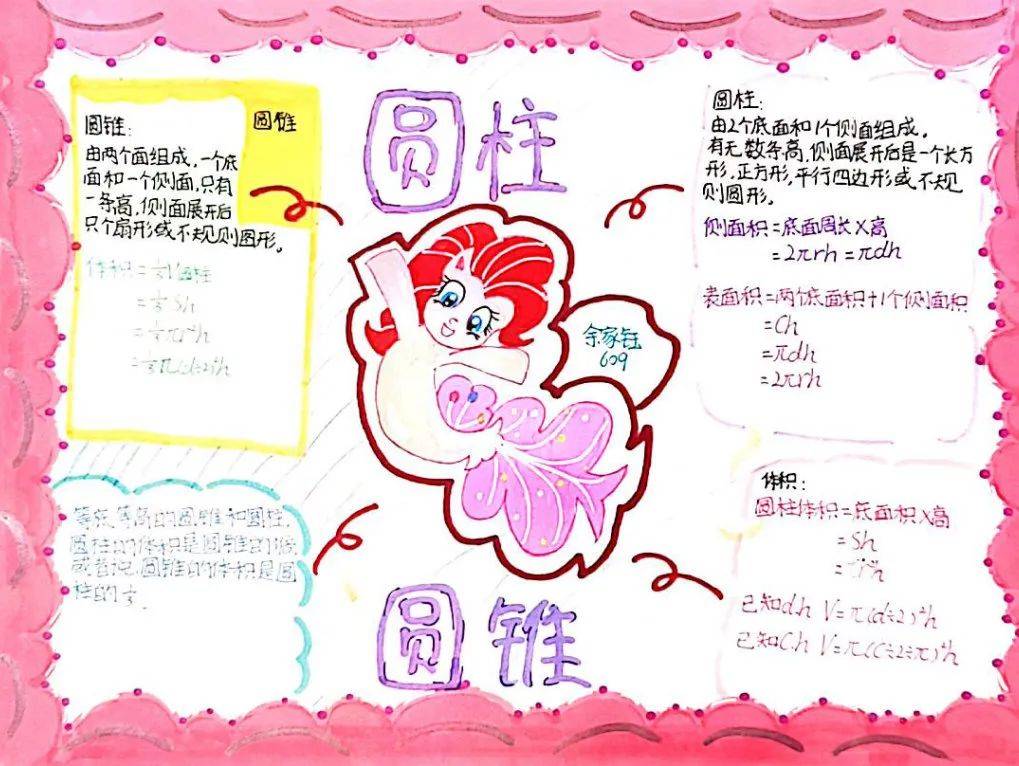 圆柱
圆锥:
圆锥
由两个面组成,一个底
面和一个侧面,只有
一条高,侧面展开后
只个扇形或不规则图形。
体积=⅓圆柱
=⅓Sh
=⅓πr²h
=⅓π(d÷2)²h
等底等高的圆锥和圆柱,
圆柱的体积是圆锥的
或者说,圆锥的体积是圆
柱的⅓.
余家
609
圆柱:
由2个底面和1个侧面组成,
有无数条高,侧面展开后是一个长方
形,正方形,平行四边形或不规
则圆形。
侧面积=底面周长×高
=2πrh=πdh
表面积=两个底面积+1个侧面积
=Ch
=πdh
=2πrh
体积:
圆柱体积=底面积×高
=Sh
=πr²h
已知d.h V=π(d÷2)²h
已知C.h V=π(C÷2÷π)²h
圆锥